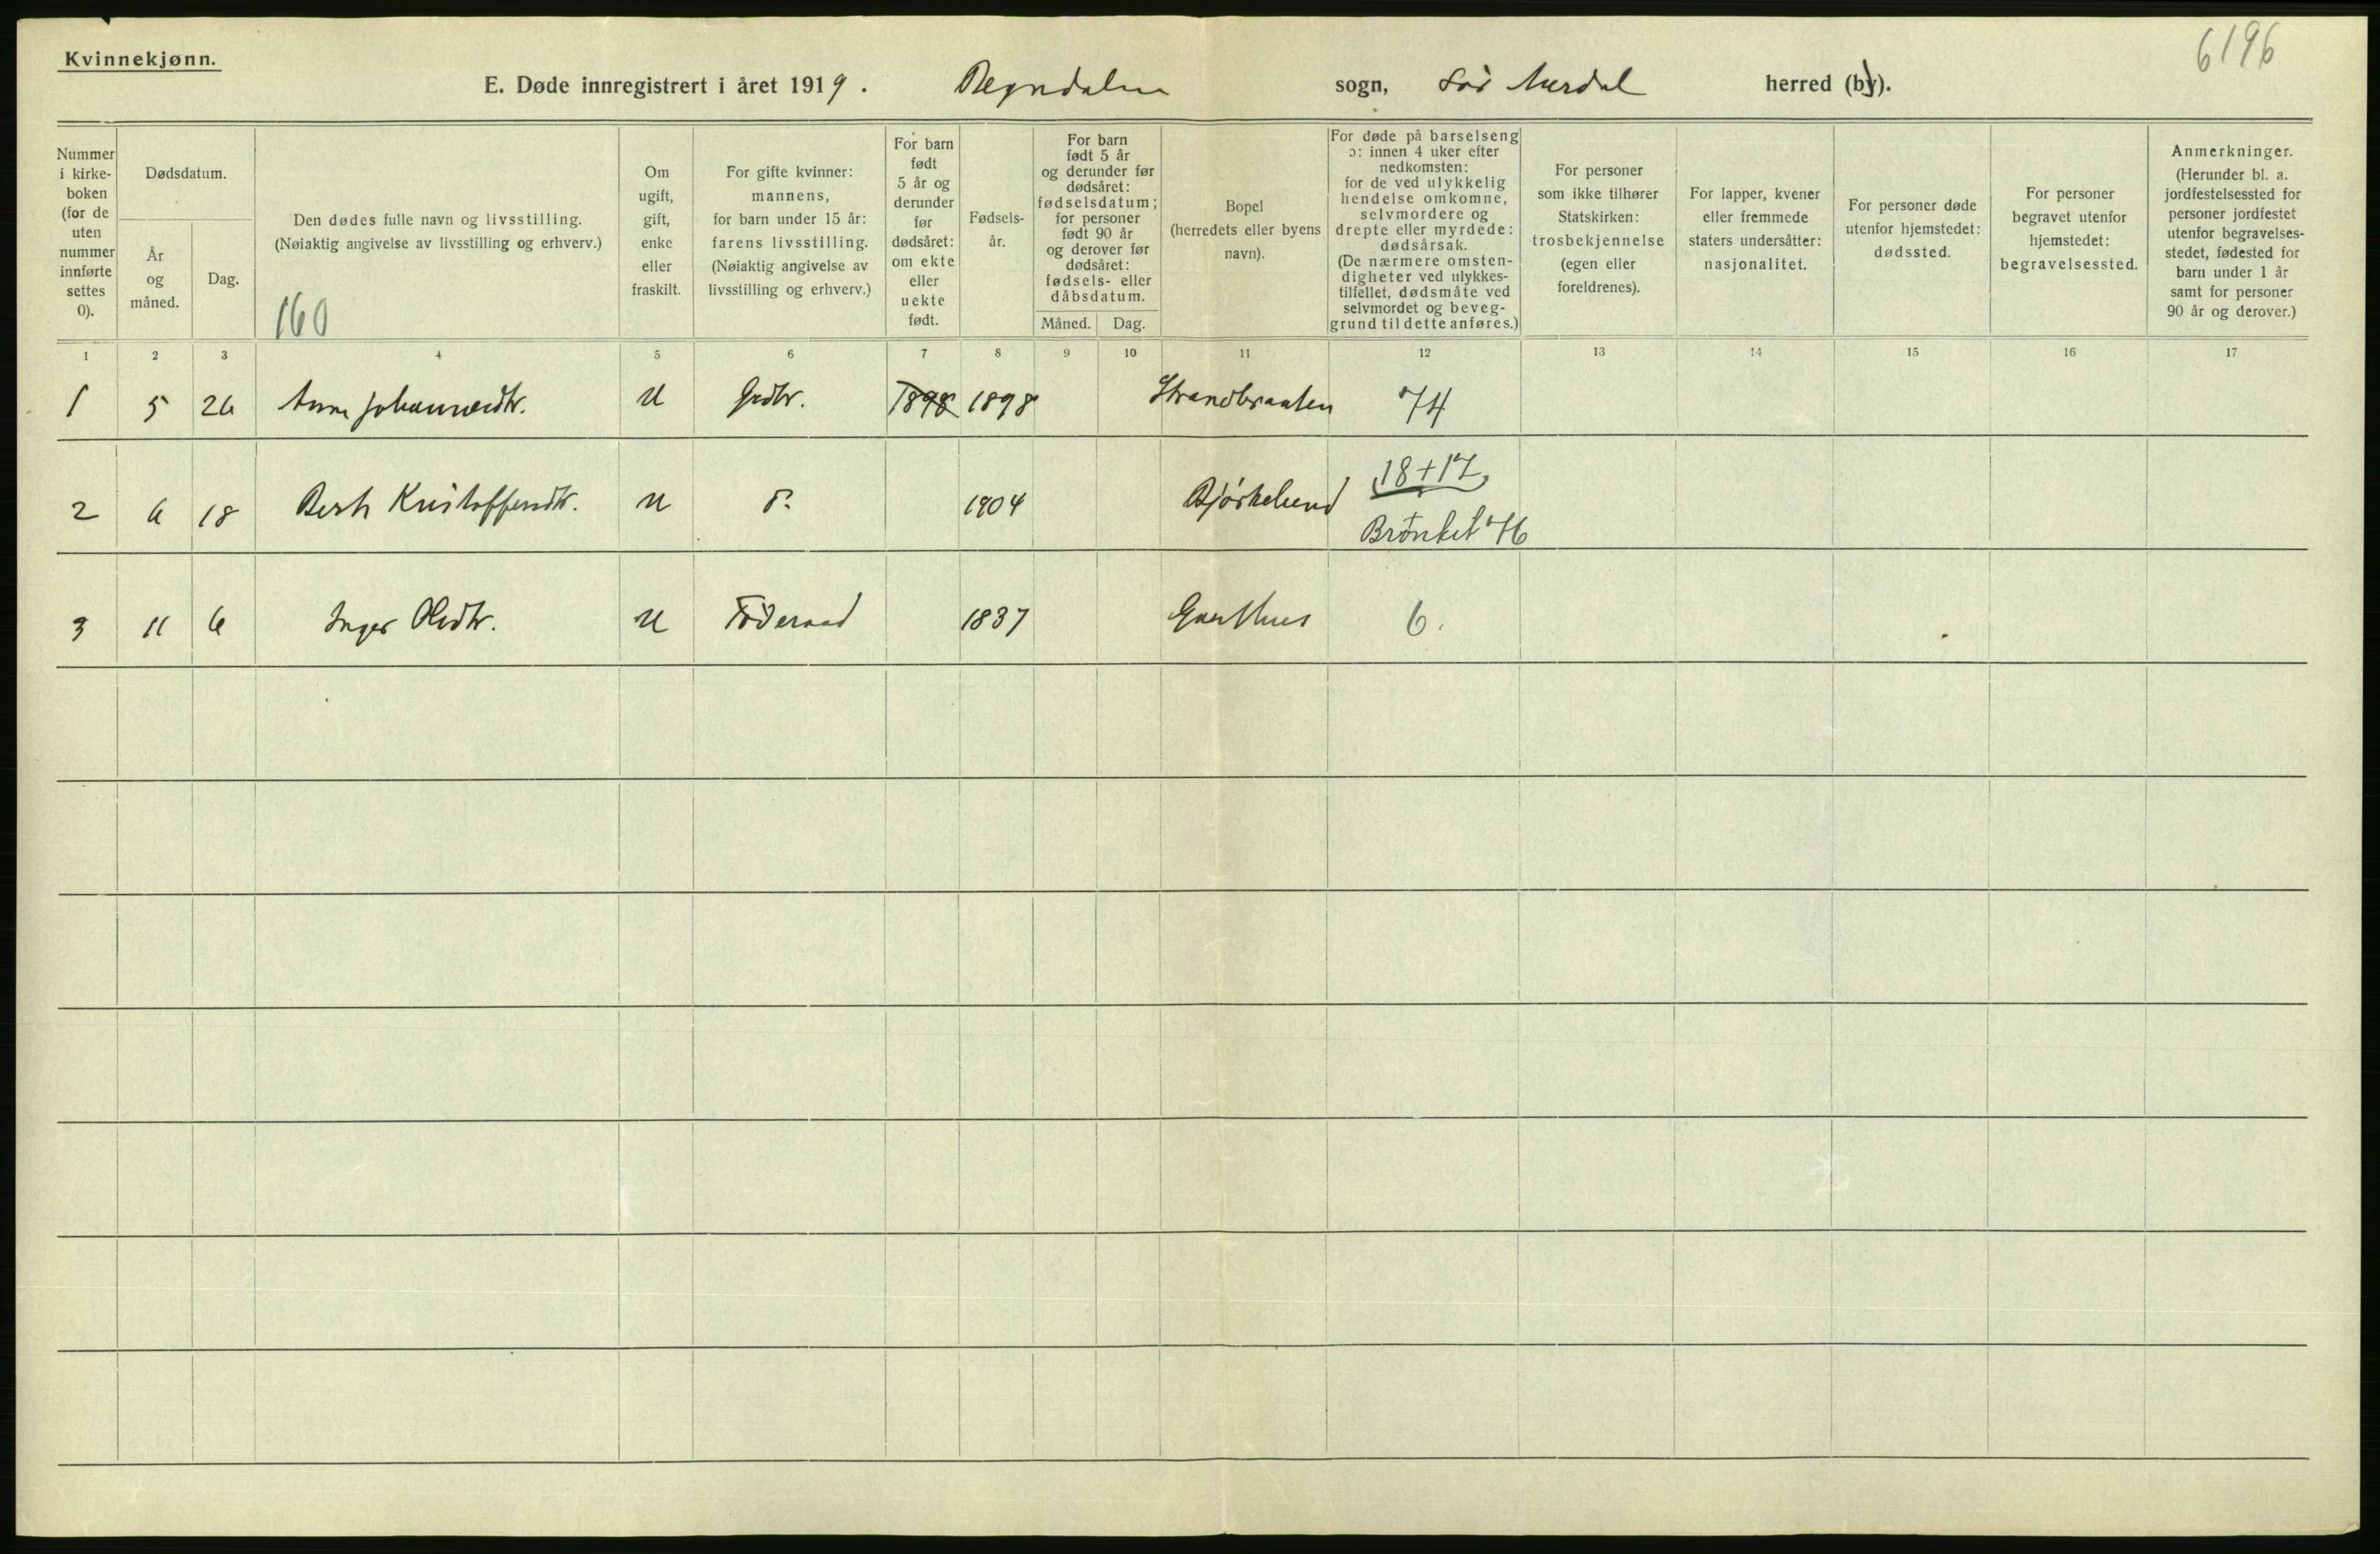 Kvinnekjønn.
6196
E. Døde innregistrert i året 1919. Begndalen sogn, Sør Aurdal herred (by).
Nummer
i kirke-
boken
(for de
uten
nummer
innførte
settes
0).
Dødsdatum.
År
og
måned.
Dag.
Den dødes fulle navn og livsstilling.
(Nøiaktig angivelse av livsstilling og erhverv.)
160
Om
ugift,
gift,
enke
eller
fraskilt.
For gifte kvinner:
mannens,
for barn under 15 år:
farens livsstilling.
(Nøiaktig angivelse av
livsstilling og erhverv.)
For barn
født
5 år og
derunder
før
dødsåret:
om ekte
eller
uekte
født.
Fødsels-
år.
For barn
født 5 år
og derunder før
dødsåret:
fødselsdatum;
for personer
født 90 år
og derover før
dødsåret:
fødsels- eller
dåbsdatum.
Måned. Dag.
Bopel
(herredets eller byens
navn).
For døde på barselseng
ɔ: innen 4 uker efter
nedkomsten:
for de ved ulykkelig
hendelse omkomne,
selvmordere og
drepte eller myrdede:
dødsårsak.
(De nærmere omsten-
digheter ved ulykkes-
tilfellet, dødsmåte ved
selvmordet og beveg-
grund til dette anføres.)
For personer
som ikke tilhører
Statskirken:
trosbekjennelse
(egen eller
foreldrenes).
For lapper, kvener
eller fremmede
staters undersåtter:
nasjonalitet.
For personer døde
utenfor hjemstedet:
dødssted.
For personer
begravet utenfor
hjemstedet:
begravelsessted.
Anmerkninger.
(Herunder bl. a.
jordfestelsessted for
personer jordfestet
utenfor begravelses-
stedet, fødested for
barn under 1 år
samt for personer
90 år og derover.)
1 2 3 4 5 6 7 8 9 10 11 12 13 14 15 16 17
1 5 26 Anne Johannesdtr. U Grdbr. 1898 1898 Strandbraaten 74
2 6 18 Berte Kristoffersdtr. U 1904 Bjørkelund 18+17
Brönkit 46
3 11 6 Inger Olsdtr. U Föderaad 1837 Garthus 6.